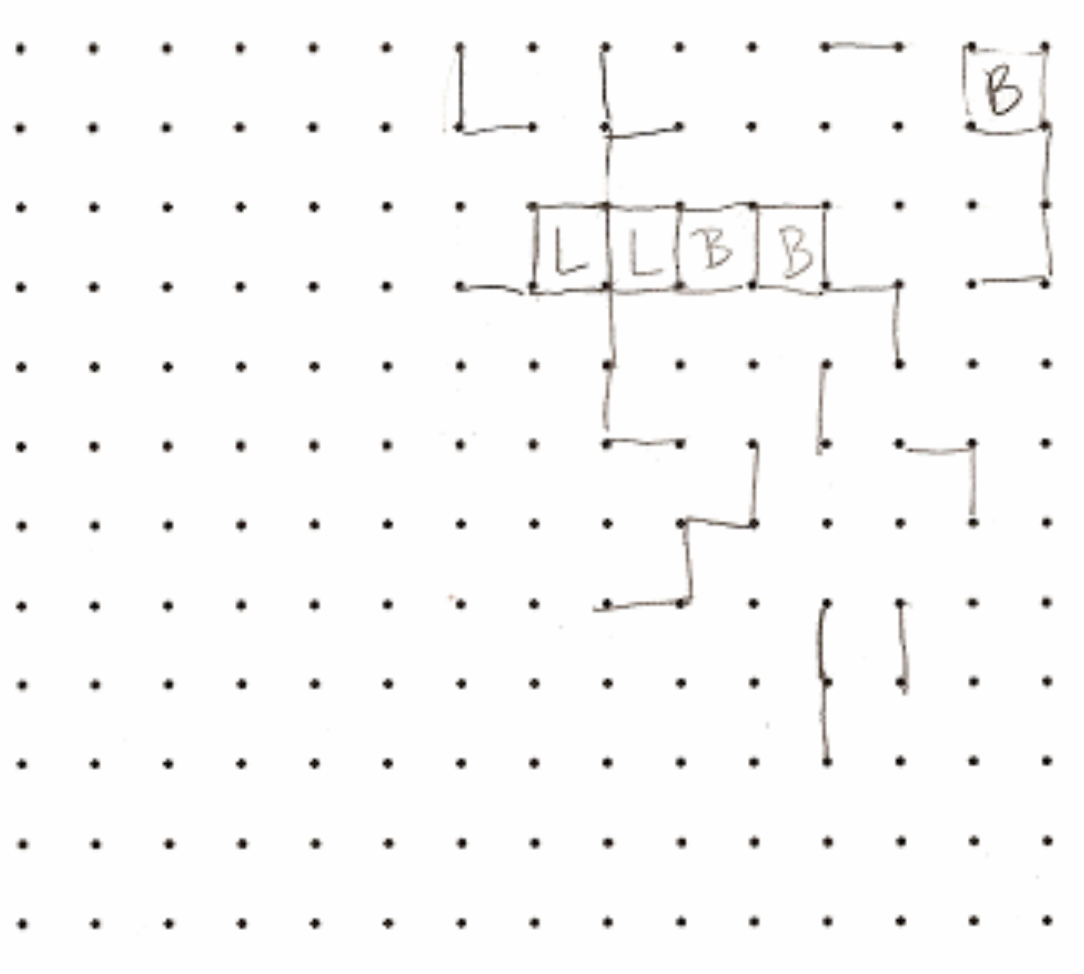 B
L L B B